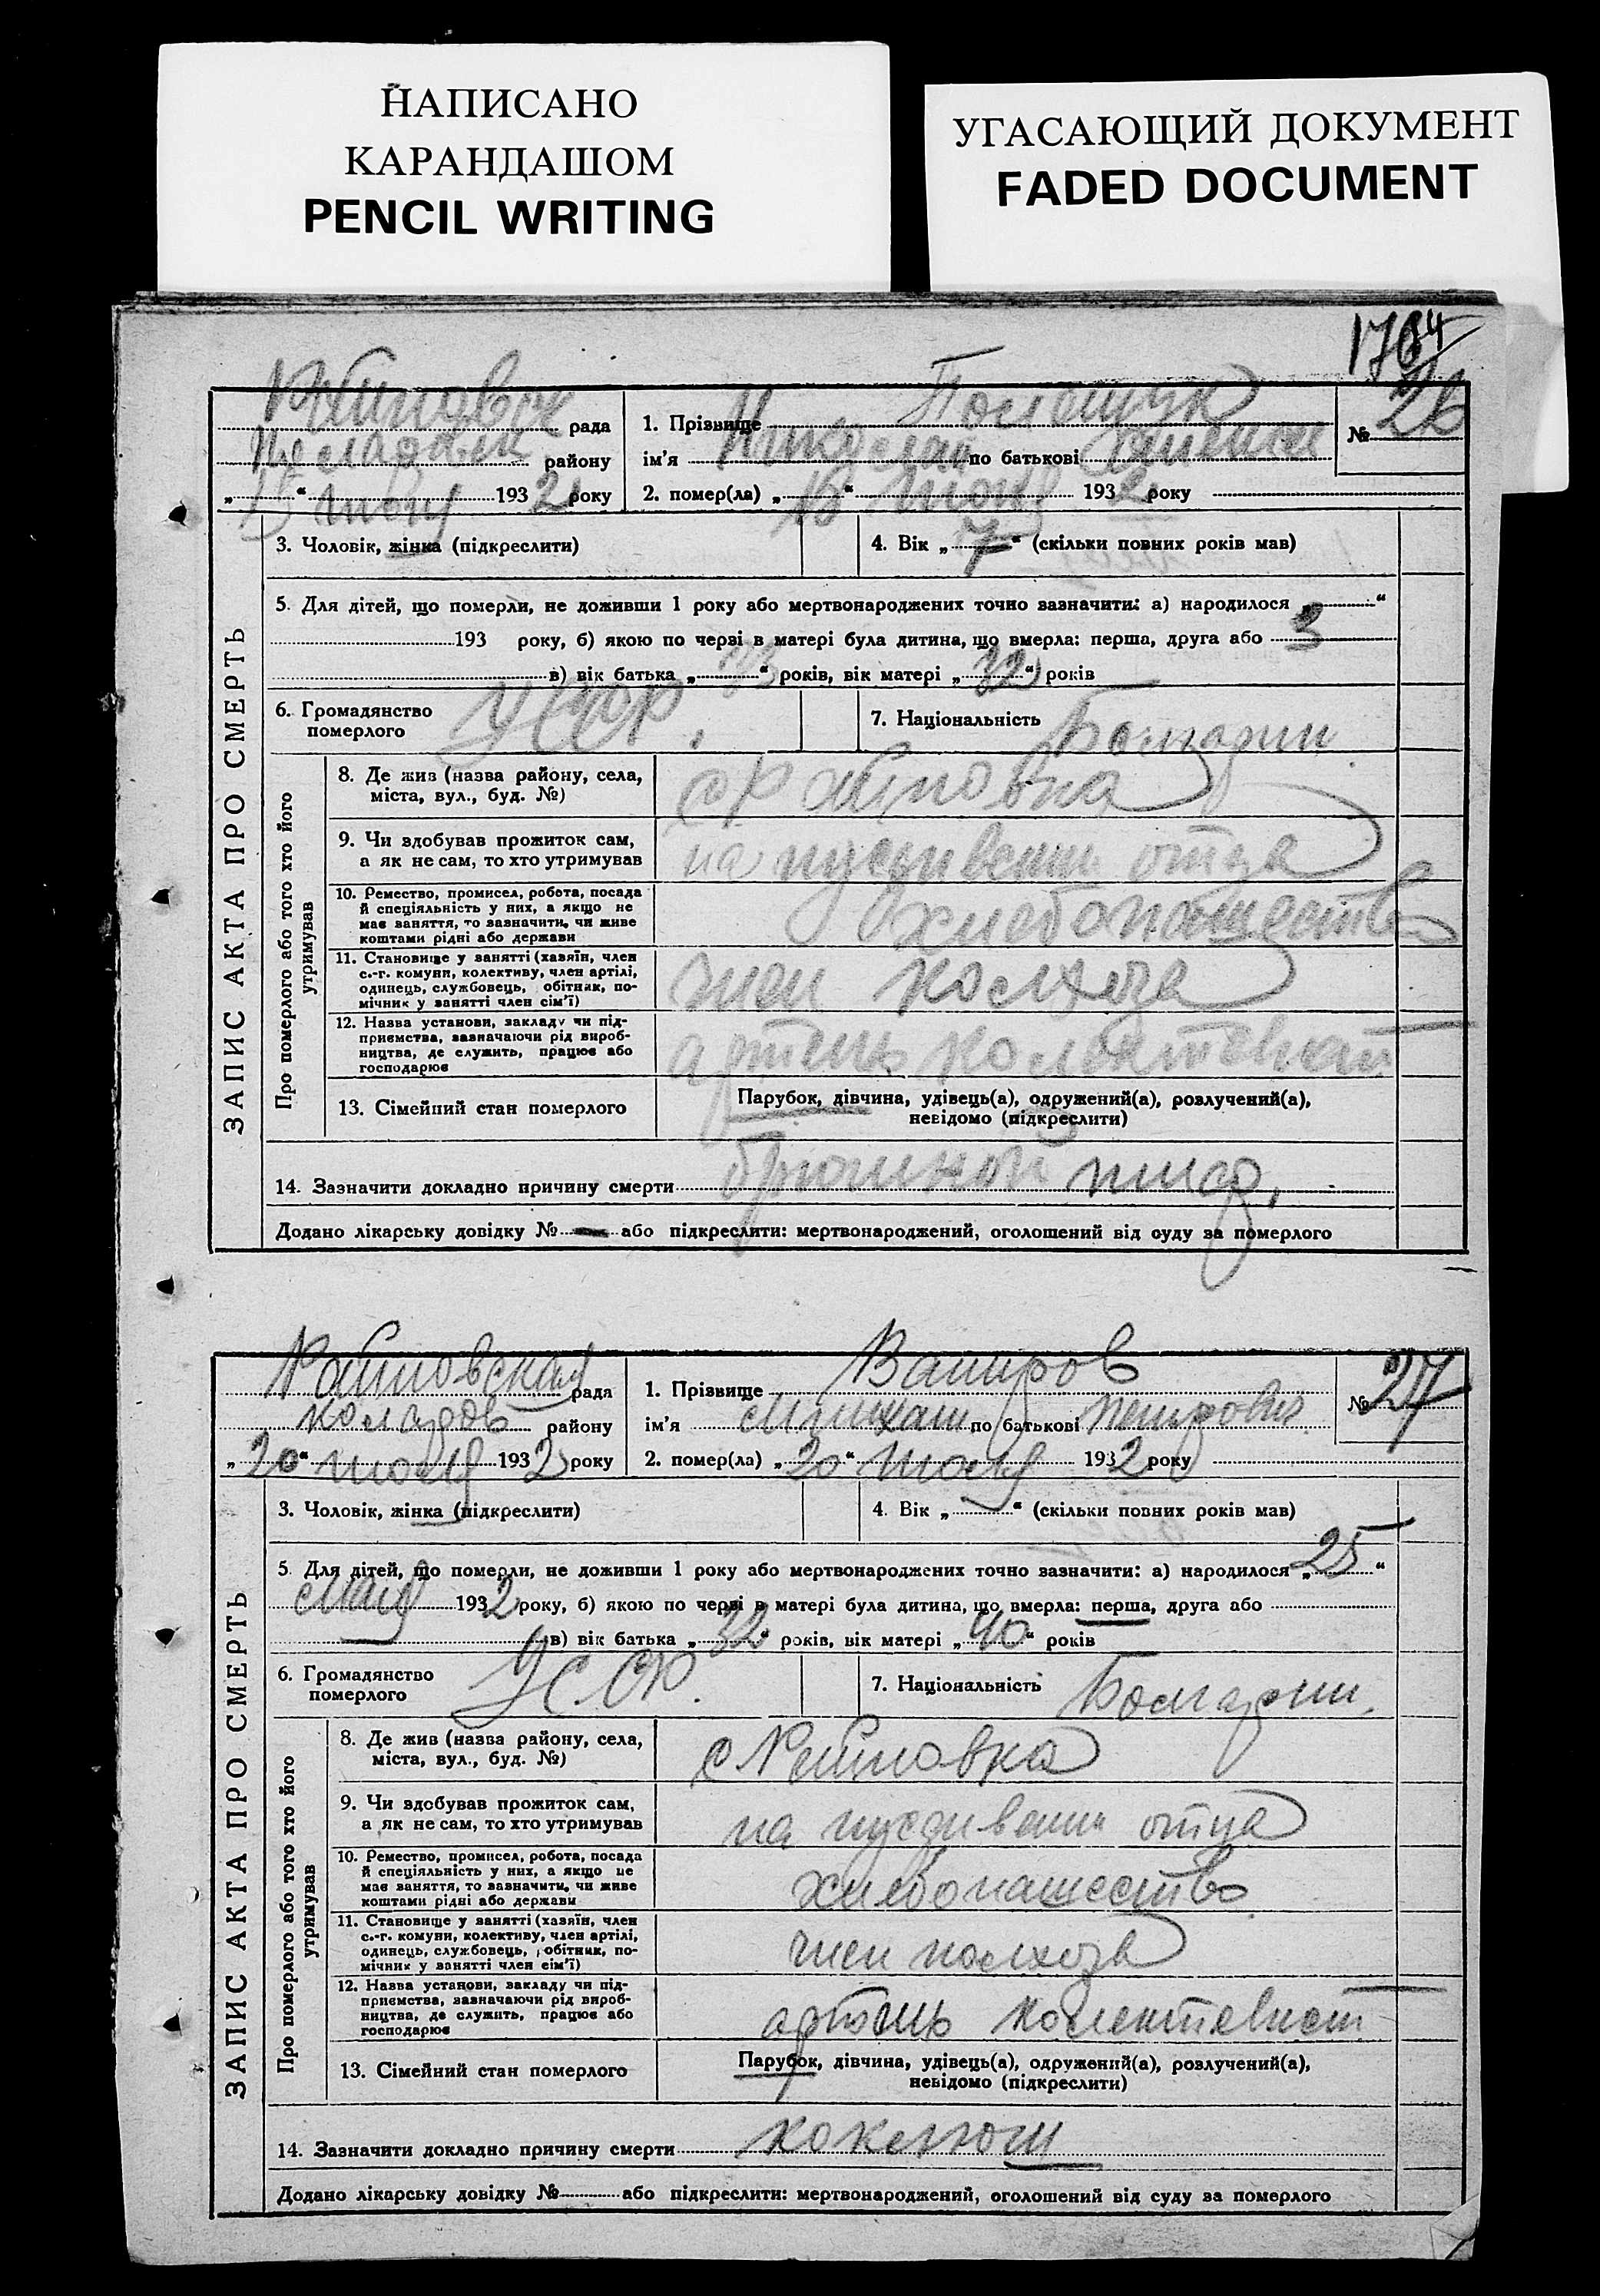 НАПИСАНО
КАРАНДАШОМ
PENCIL WRITING
УГАСАЮЩИЙ ДОКУМЕНТ
FADED DOCUMENT
ЗАПИС АКТА ПРО СМЕРТЬ
рада
району
193 2 року
1. Прізвище Полещук
ім'я Николай по батькові
2. помер(ла) „15“ 193 2 року
№ 26
3. Чоловік, жінка (підкреслити)
4. Вік „7“ (скільки повних років мав)
5. Для дітей, що померли, не доживши 1 року або мертвонароджених точно зазначити: а) народилося „ “
193 року, б) якою по черзі в матері була дитина, що вмерла: перша, друга або 3
в) вік батька „33“ років, вік матері „32“ років
6. Громадянство померлого УССР.
7. Національність Болгарин
Про померлого або того хто його утримував
8. Де жив (назва району, села, міста, вул., буд. №) с Райновка
9. Чи здобував прожиток сам, а як не сам, то хто утримував на иждивении отца
10. Ремество, промисел, робота, посада й спеціяльність у них, а якщо не має заняття, то зазначити, чи живе коштами рідні або держави хлебопашество
11. Становище у занятті (хазяїн, член с.-г. комуни, колективу, член артілі, одинець, службовець, робітник, помічник у занятті член сім'ї) член колхоза
12. Назва установи, закладу чи підприємства, зазначаючи рід виробництва, де служить, працює або господарює артель
13. Сімейний стан померлого Парубок, дівчина, удівець(а), одружений(а), розлучений(а), невідомо (підкреслити)
14. Зазначити докладно причину смерти брюшной тиф.
Додано лікарську довідку № — або підкреслити: мертвонароджений, оголошений від суду за померлого
ЗАПИС АКТА ПРО СМЕРТЬ
Райновская рада
району
„20“ июля 193 2 року
1. Прізвище Вапиров
ім'я Михаил по батькові Петрович
2. помер(ла) „20“ июля 193 2 року
№ 27
3. Чоловік, жінка (підкреслити)
4. Вік „ “ (скільки повних років мав)
5. Для дітей, що померли, не доживши 1 року або мертвонароджених точно зазначити: а) народилося „25“
мая 193 2 року, б) якою по черзі в матері була дитина, що вмерла: перша, друга або
в) вік батька „32“ років, вік матері „40“ років
6. Громадянство померлого УССР.
7. Національність Болгарин.
Про померлого або того хто його утримував
8. Де жив (назва району, села, міста, вул., буд. №) с Райновка
9. Чи здобував прожиток сам, а як не сам, то хто утримував на иждивении отца
10. Ремество, промисел, робота, посада й спеціяльність у них, а якщо не має заняття, то зазначити, чи живе коштами рідні або держави хлебопашество
11. Становище у занятті (хазяїн, член с.-г. комуни, колективу, член артілі, одинець, службовець, робітник, помічник у занятті член сім'ї) член колхоза
12. Назва установи, закладу чи підприємства, зазначаючи рід виробництва, де служить, працює або господарює артель колективист
13. Сімейний стан померлого Парубок, дівчина, удівець(а), одружений(а), розлучений(а), невідомо (підкреслити)
14. Зазначити докладно причину смерти коклюш
Додано лікарську довідку № або підкреслити: мертвонароджений, оголошений від суду за померлого